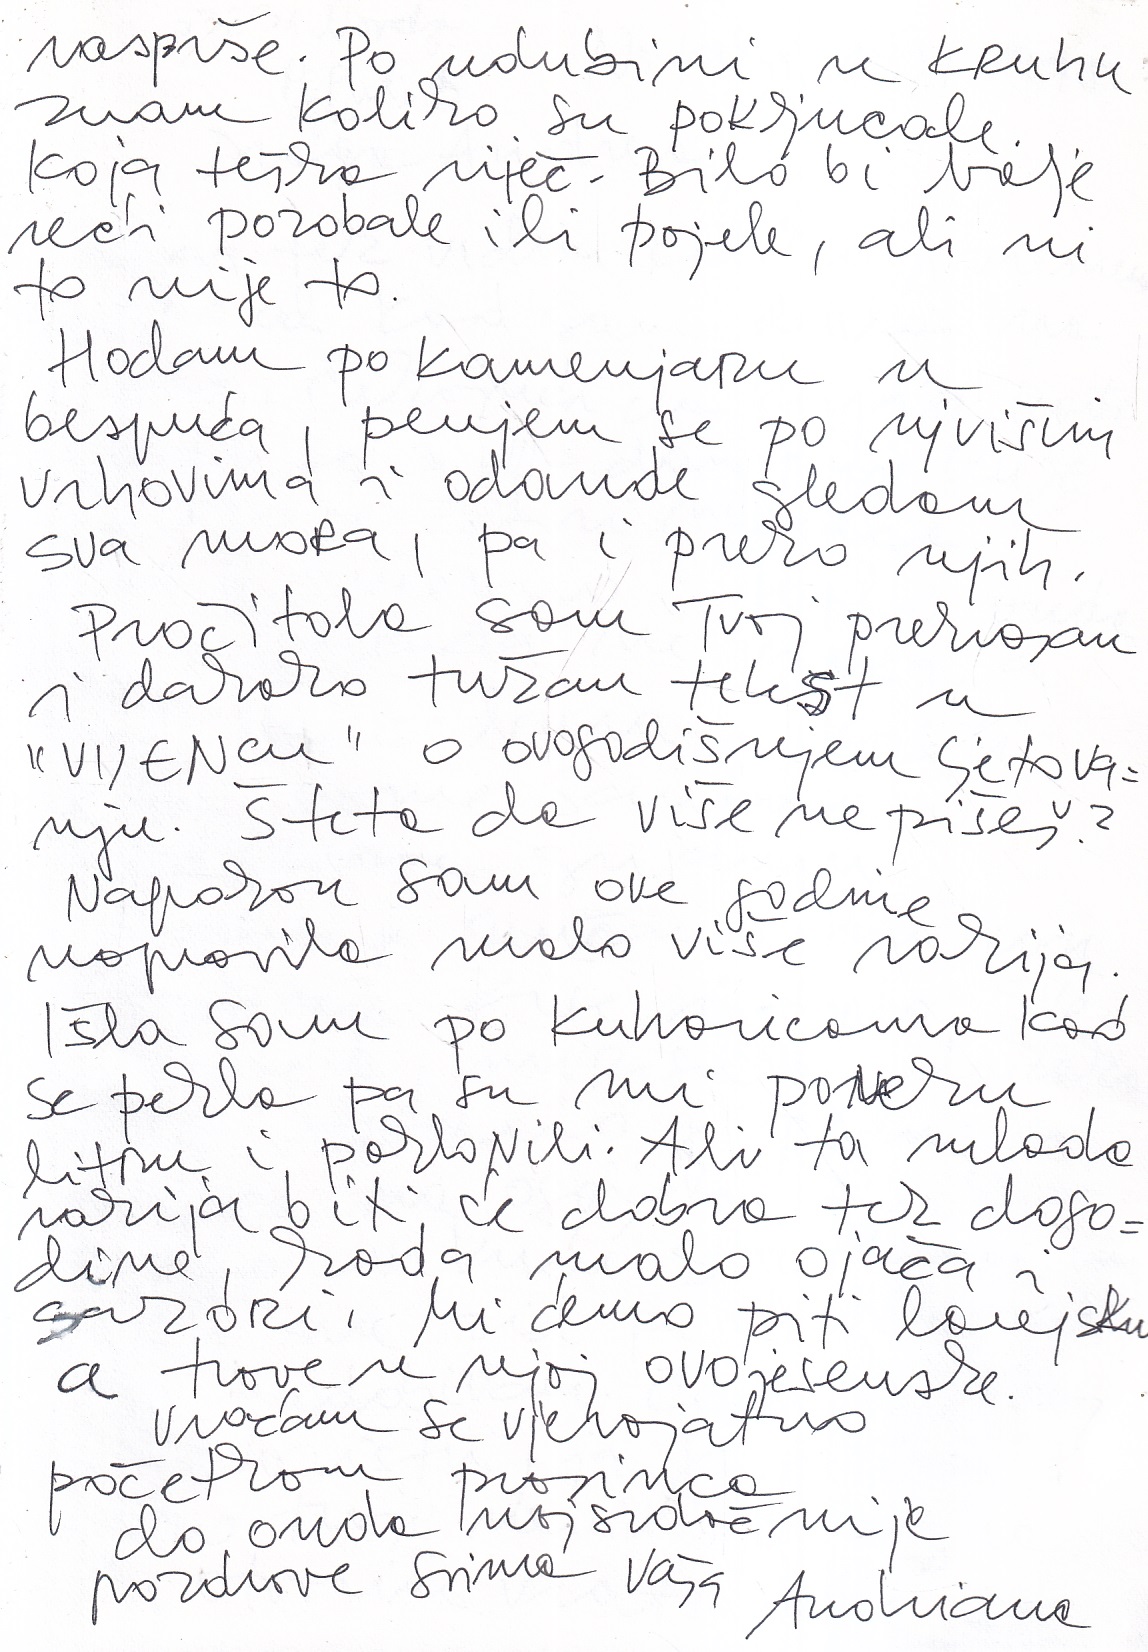 rasprše. Po udubini u kruhu
znam koliko su pokljucale.
koja teška riječ. Bilo bi bolje
reći pozobale ili pojele, ali ni
to nije to.
Hodam po kamenjaru u
bespuća, penjem se po njvišim
vrhovima i odande gledam
sva mora, pa i preko njih.
Pročitala sam Tvoj prekrasan
i dakako tužan tekst u
"VIJENCU" o ovogodišnjem Sjetova=
nju. Šteta da više ne pišeš?
Napokon sam ove godine
napravila malo više rakija.
Išla sam po kuharicama kad
se pekla pa su mi poneku
litru i poklonili. Ali ta mlada
rakija biti će dobra tek dogo=
dine, kada malo ojača i
sazori. Mi ćemo piti lanjsku
a trave u njoj ovojesenske.
Vraćam se vjerojatno
početkom prosinca
do onda najsrdačnije
pozdrave svima Vaša
Andriana